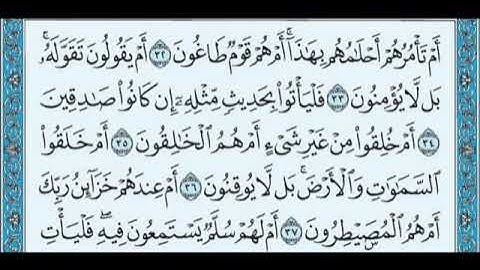 أَمْ تَأْمُرُهُمْ أَحْلَٰمُهُم بِهَٰذَآ ۚ أَمْ هُمْ قَوْمٌ طَاغُونَ ٣٢ أَمْ يَقُولُونَ تَقَوَّلَهُۥ ۚ
بَل لَّا يُؤْمِنُونَ ٣٣ فَلْيَأْتُوا۟ بِحَدِيثٍ مِّثْلِهِۦٓ إِن كَانُوا۟ صَٰدِقِينَ
٣٤ أَمْ خُلِقُوا۟ مِنْ غَيْرِ شَىْءٍ أَمْ هُمُ ٱلْخَٰلِقُونَ ٣٥ أَمْ خَلَقُوا۟
ٱلسَّمَٰوَٰتِ وَٱلْأَرْضَ ۚ بَل لَّا يُوقِنُونَ ٣٦ أَمْ عِندَهُمْ خَزَآئِنُ رَبِّكَ
أَمْ هُمُ ٱلْمُصَۣيْطِرُونَ ٣٧ أَمْ لَهُمْ سُلَّمٌ يَسْتَمِعُونَ فِيهِ ۖ فَلْيَأْتِ